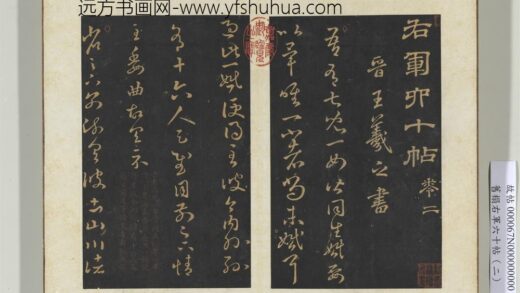 远方书画网- www. yfshuhua. com
右軍六十帖 卷二
晉王羲之書
吾有七兒一女皆同生婚娶
以畢唯一小者尚未婚耳
過此一婚便得至彼今內外孫
有十六人足慰目前足下情
至委曲故具示
省足下別疏具彼土山川諸
故帖 000067N000000000
舊榻右軍六十帖(二)